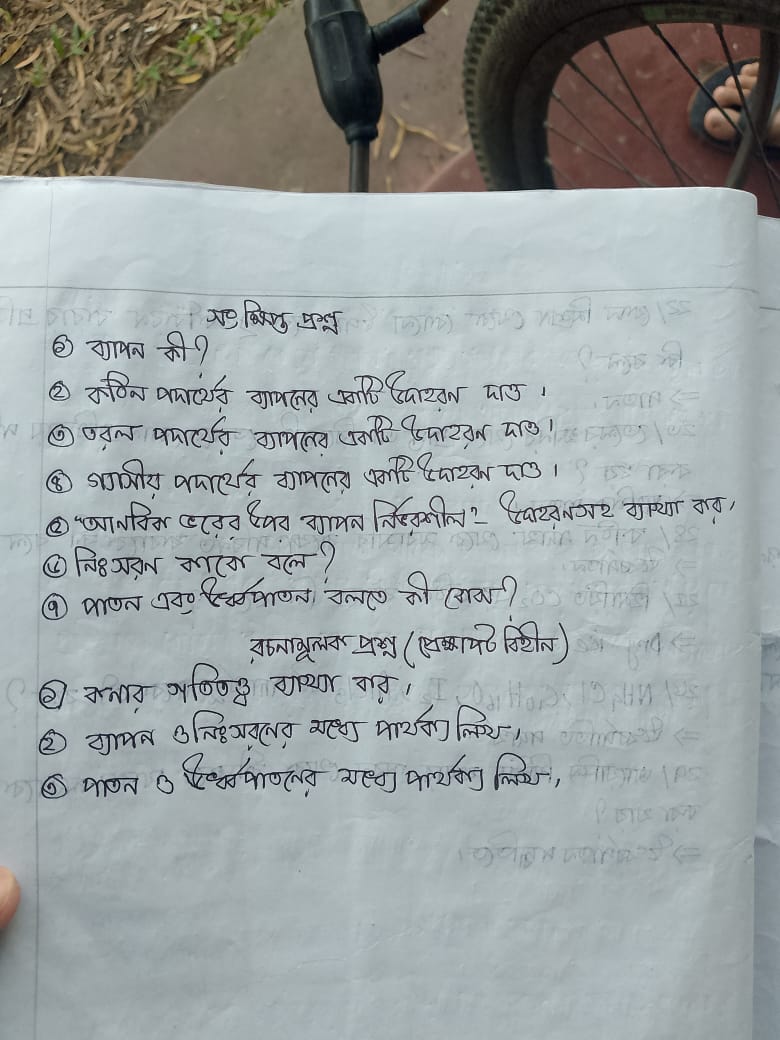 সংক্ষিপ্ত প্রশ্ন
① ব্যাপন কী?
② কঠিন পদার্থের ব্যাপনের একটি উদাহরন দাও।
③ তরল পদার্থের ব্যাপনের একটি উদাহরন দাও।
④ গ্যাসীয় পদার্থের ব্যাপনের একটি উদাহরন দাও।
⑤ "আনবিক ভরের উপর ব্যাপন নির্ভরশীল"- উদাহরনসহ ব্যাখ্যা কর,
⑥ নিঃসরন কাকে বলে?
⑦ পাতন এবং উর্ধ্বপাতন বলতে কী বোঝ?
রচনামূলক প্রশ্ন (প্রেক্ষাপট বিহীন)
① কনার গতিতত্ত্ব ব্যাখ্যা কর,
② ব্যাপন ও নিঃসরনের মধ্যে পার্থক্য লিখ,
③ পাতন ও উর্ধ্বপাতনের মধ্যে পার্থক্য লিখ,